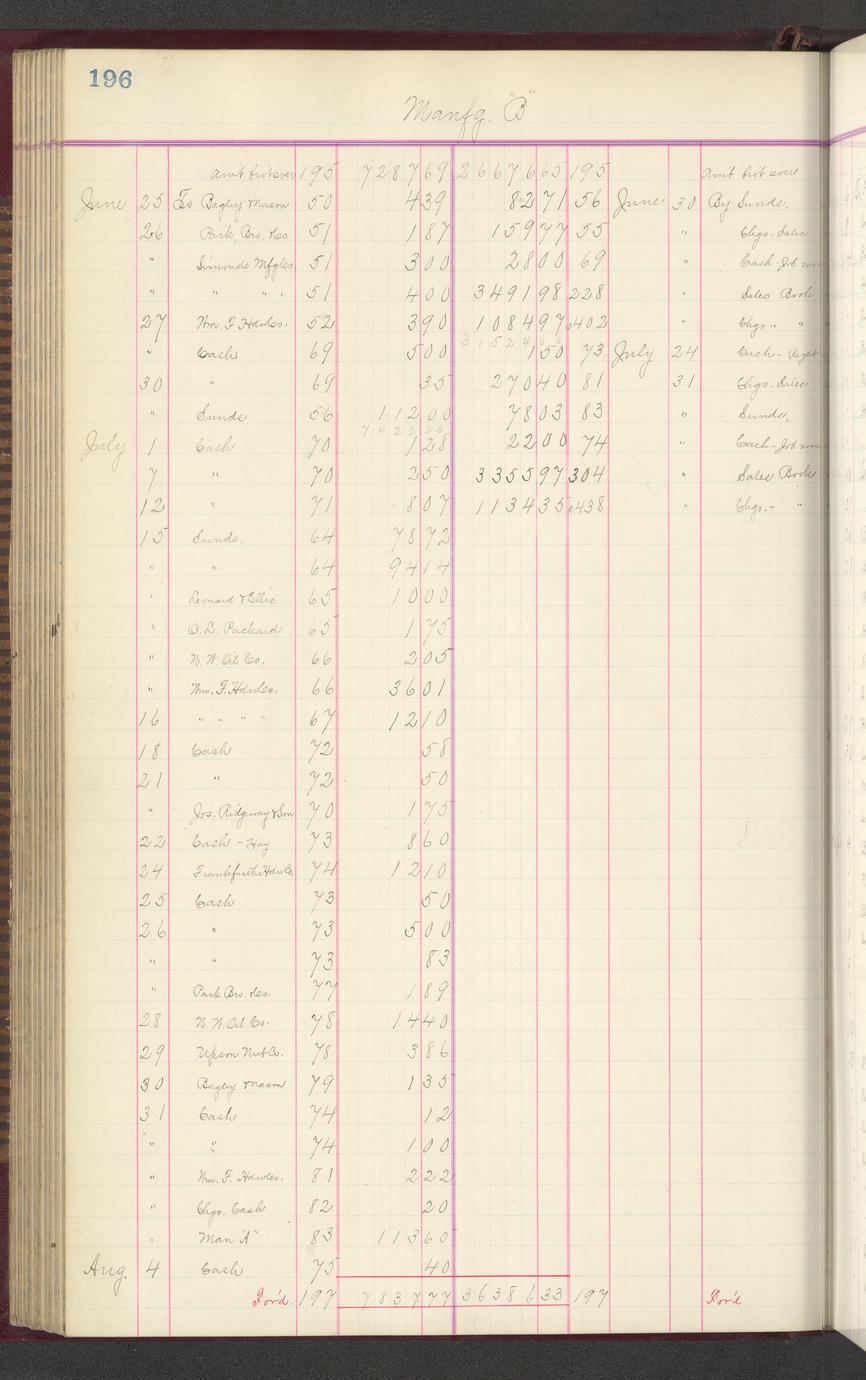 196
Manfg. "B"
am't bro't over 195 7287 69 26676 65 195 am't bro't over
June 25 To Bagley & Mason 50 4 39 82 71 56 June 30 By Sunds.
26 Park, Bro. & Co. 51 1 87 159 77 55 " Chgs. Sales
" Simonds Mfg Co. 51 3 00 28 00 69 " Cash - Job room
" " " " 51 4 00 3491 98 228 " Sales Book
27 Wm. F. Hdw Co. 52 3 90 1084 97 c402 " Chgs. " "
" Cash 69 5 00 1 50 73 July 24 Cash -
30 " 69 35 270 40 81 31 Chgs. Sales
" Sunds 56 112 00 78 03 83 " Sunds,
July 1 Cash 70 1 28 22 00 74 " Cash - Job room
7 " 70 2 50 3355 97 304 " Sales Book
12 " 71 8 07 1134 35 c438 " Chgs. " "
15 Sunds. 64 78 72
" " 64 94 14
" Leonard & Ellis 65 10 00
" O. L. Packard 65 1 75
" W. W. Oil Co. 66 2 05
" Wm. F. Hdw Co. 66 36 01
16 " " " " 67 12 10
18 Cash 72 58
21 " 72 50
" Jos. Ridgway & Son 70 1 75
22 Cash - Hay 73 8 60
24 Frankfurth Hdw Co. 74 12 10
25 Cash 73 50
26 " 73 5 00
" " 73 83
" Park Bro. & Co. 77 1 89
28 W. W. Oil Co. 78 14 40
29 Upson Nut Co. 78 3 86
30 Bagley & Mason 79 1 35
31 Cash 74 12
" " 74 1 00
" Wm. F. Hdw Co. 81 2 22
" Chgs. Cash 82 20
" Man "A" 83 113 65
Aug. 4 Cash 75 40
For'd. 197 7837 77 36386 33 197 For'd